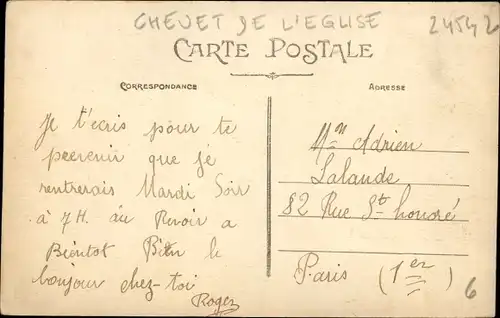 CHEVET DE L'EGLISE
24542
CARTE POSTALE
CORRESPONDANCE
ADRESSE
Je t'ecris pour te
peervenir que je
rentrerais Mardi Soir
à 7H. au Revoir a
Bientot Bien le
bonjour chez-toi
Roger
Mn Adrien
Lalande
82 Rue St honoré
Paris (1er)
6